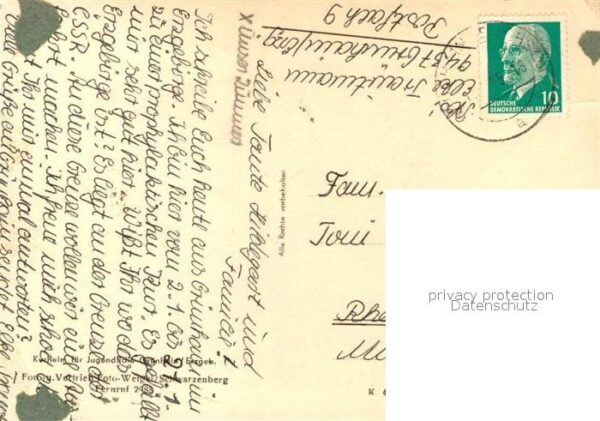 Abs.
Elke Trautmann
9437 Grünhain/Erzg.
Postfach 9
X Unser Zimmer
Liebe Tante Hildegart und
Familie!
Ich schreibe Euch heute aus Grünhain im
Erzgebirge. Ich bin hier vom 2.1. bis 2.1.
zu einer prophylaktischen Kur. Es gefällt
mir sehr gut hier. Wißt Ihr wo das
Erzgebirge ist? Es liegt an der Grenze der
ČSSR. An diese Grenze wollen wir eine
machen. Ich freue mich schon
Ihr mir einmal antworten?
Viele Grüße aus Grünhain sendet Elke
DEUTSCHE
DEMOKRATISCHE REPUBLIK
10
Fam.
Toni
Rhe
Alle Rechte vorbehalten
Kurheim für Jugendliche Grünhain/Erzgeb.
Fotogr. Vertrieb Foto-Weigel, Schwarzenberg
Fernruf
K
privacy protection
Datenschutz